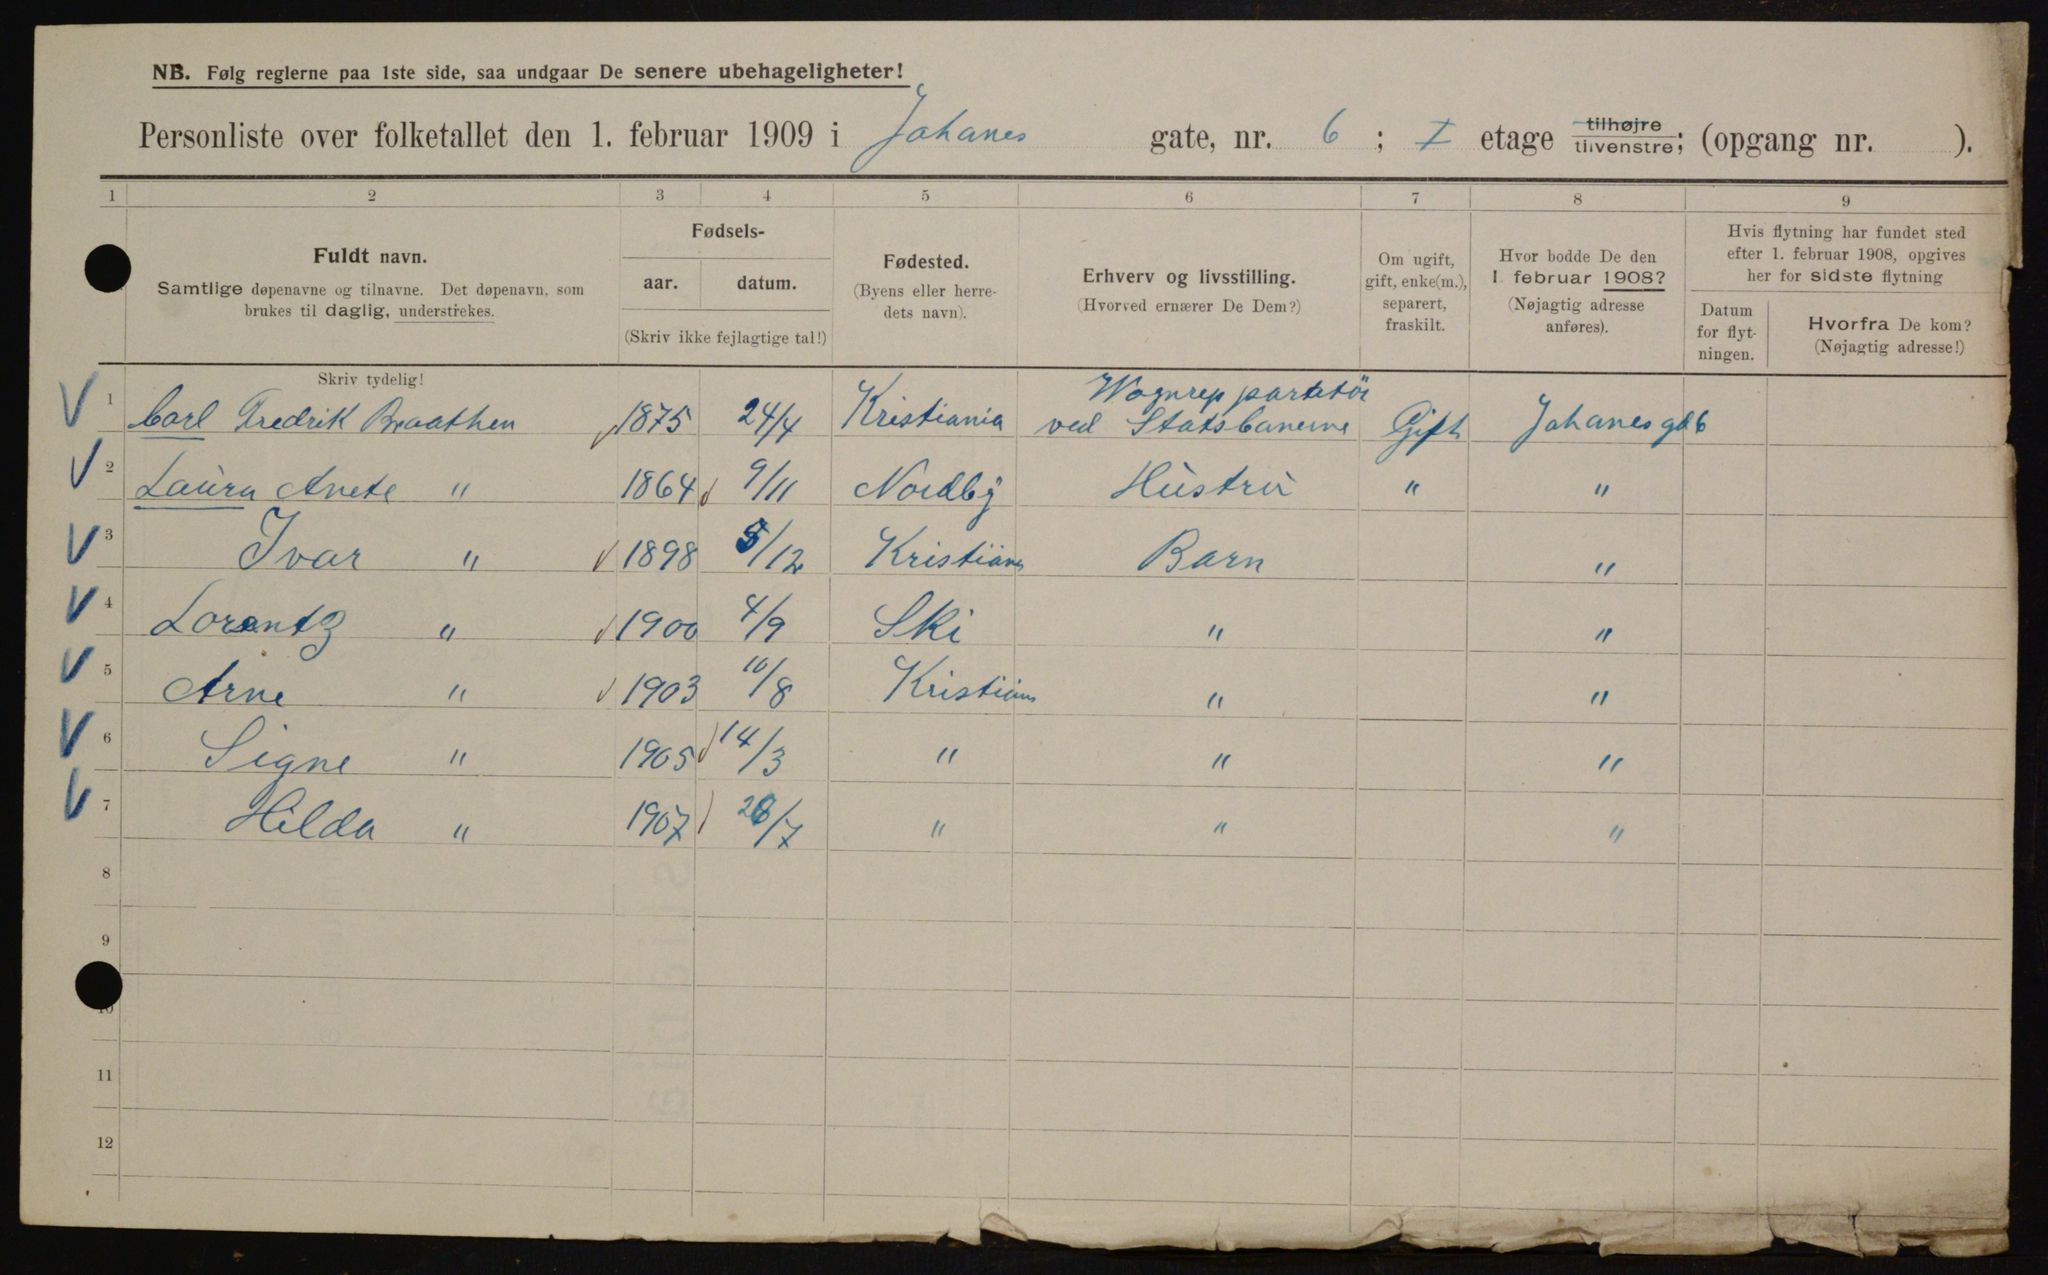 NB. Følg reglerne paa 1ste side, saa undgaar De senere ubehageligheter!
Personliste over folketallet den 1. februar 1909 i Johanes gate, nr. 6; I etage tilhøjre tilvenstre; (opgang nr. ).
1 2 3 4 5 6 7 8 9
Fuldt navn.
Samtlige døpenavne og tilnavne. Det døpenavn, som
brukes til daglig, understrekes.
Skriv tydelig!
Fødsels-
aar. datum.
(Skriv ikke fejlagtige tal!)
Fødested.
(Byens eller herre-
dets navn).
Erhverv og livsstilling.
(Hvorved ernærer De Dem?)
Om ugift,
gift, enke(m.),
separert,
fraskilt.
Hvor bodde De den
1. februar 1908?
(Nøjagtig adresse
anføres).
Hvis flytning har fundet sted
efter 1. februar 1908, opgives
her for sidste flytning
Datum
for flyt-
ningen.
Hvorfra De kom?
(Nøjagtig adresse!)
V 1 Carl Fredrik Braathen 1875 24/4 Kristiania Wognreppartatör ved Statsbanerne Gift Johanes gd 6
V 2 Laura Anete " 1864 9/11 Nordby Hustru " "
V 3 Ivar " 1898 5/12 Kristiania Barn "
V 4 Lorentz " 1900 4/9 Ski " "
V 5 Arne " 1903 10/8 Kristiania " "
V 6 Signe " 1905 14/3 " " "
V 7 Hilda " 1907 26/7 " " "
8
9
10
11
12